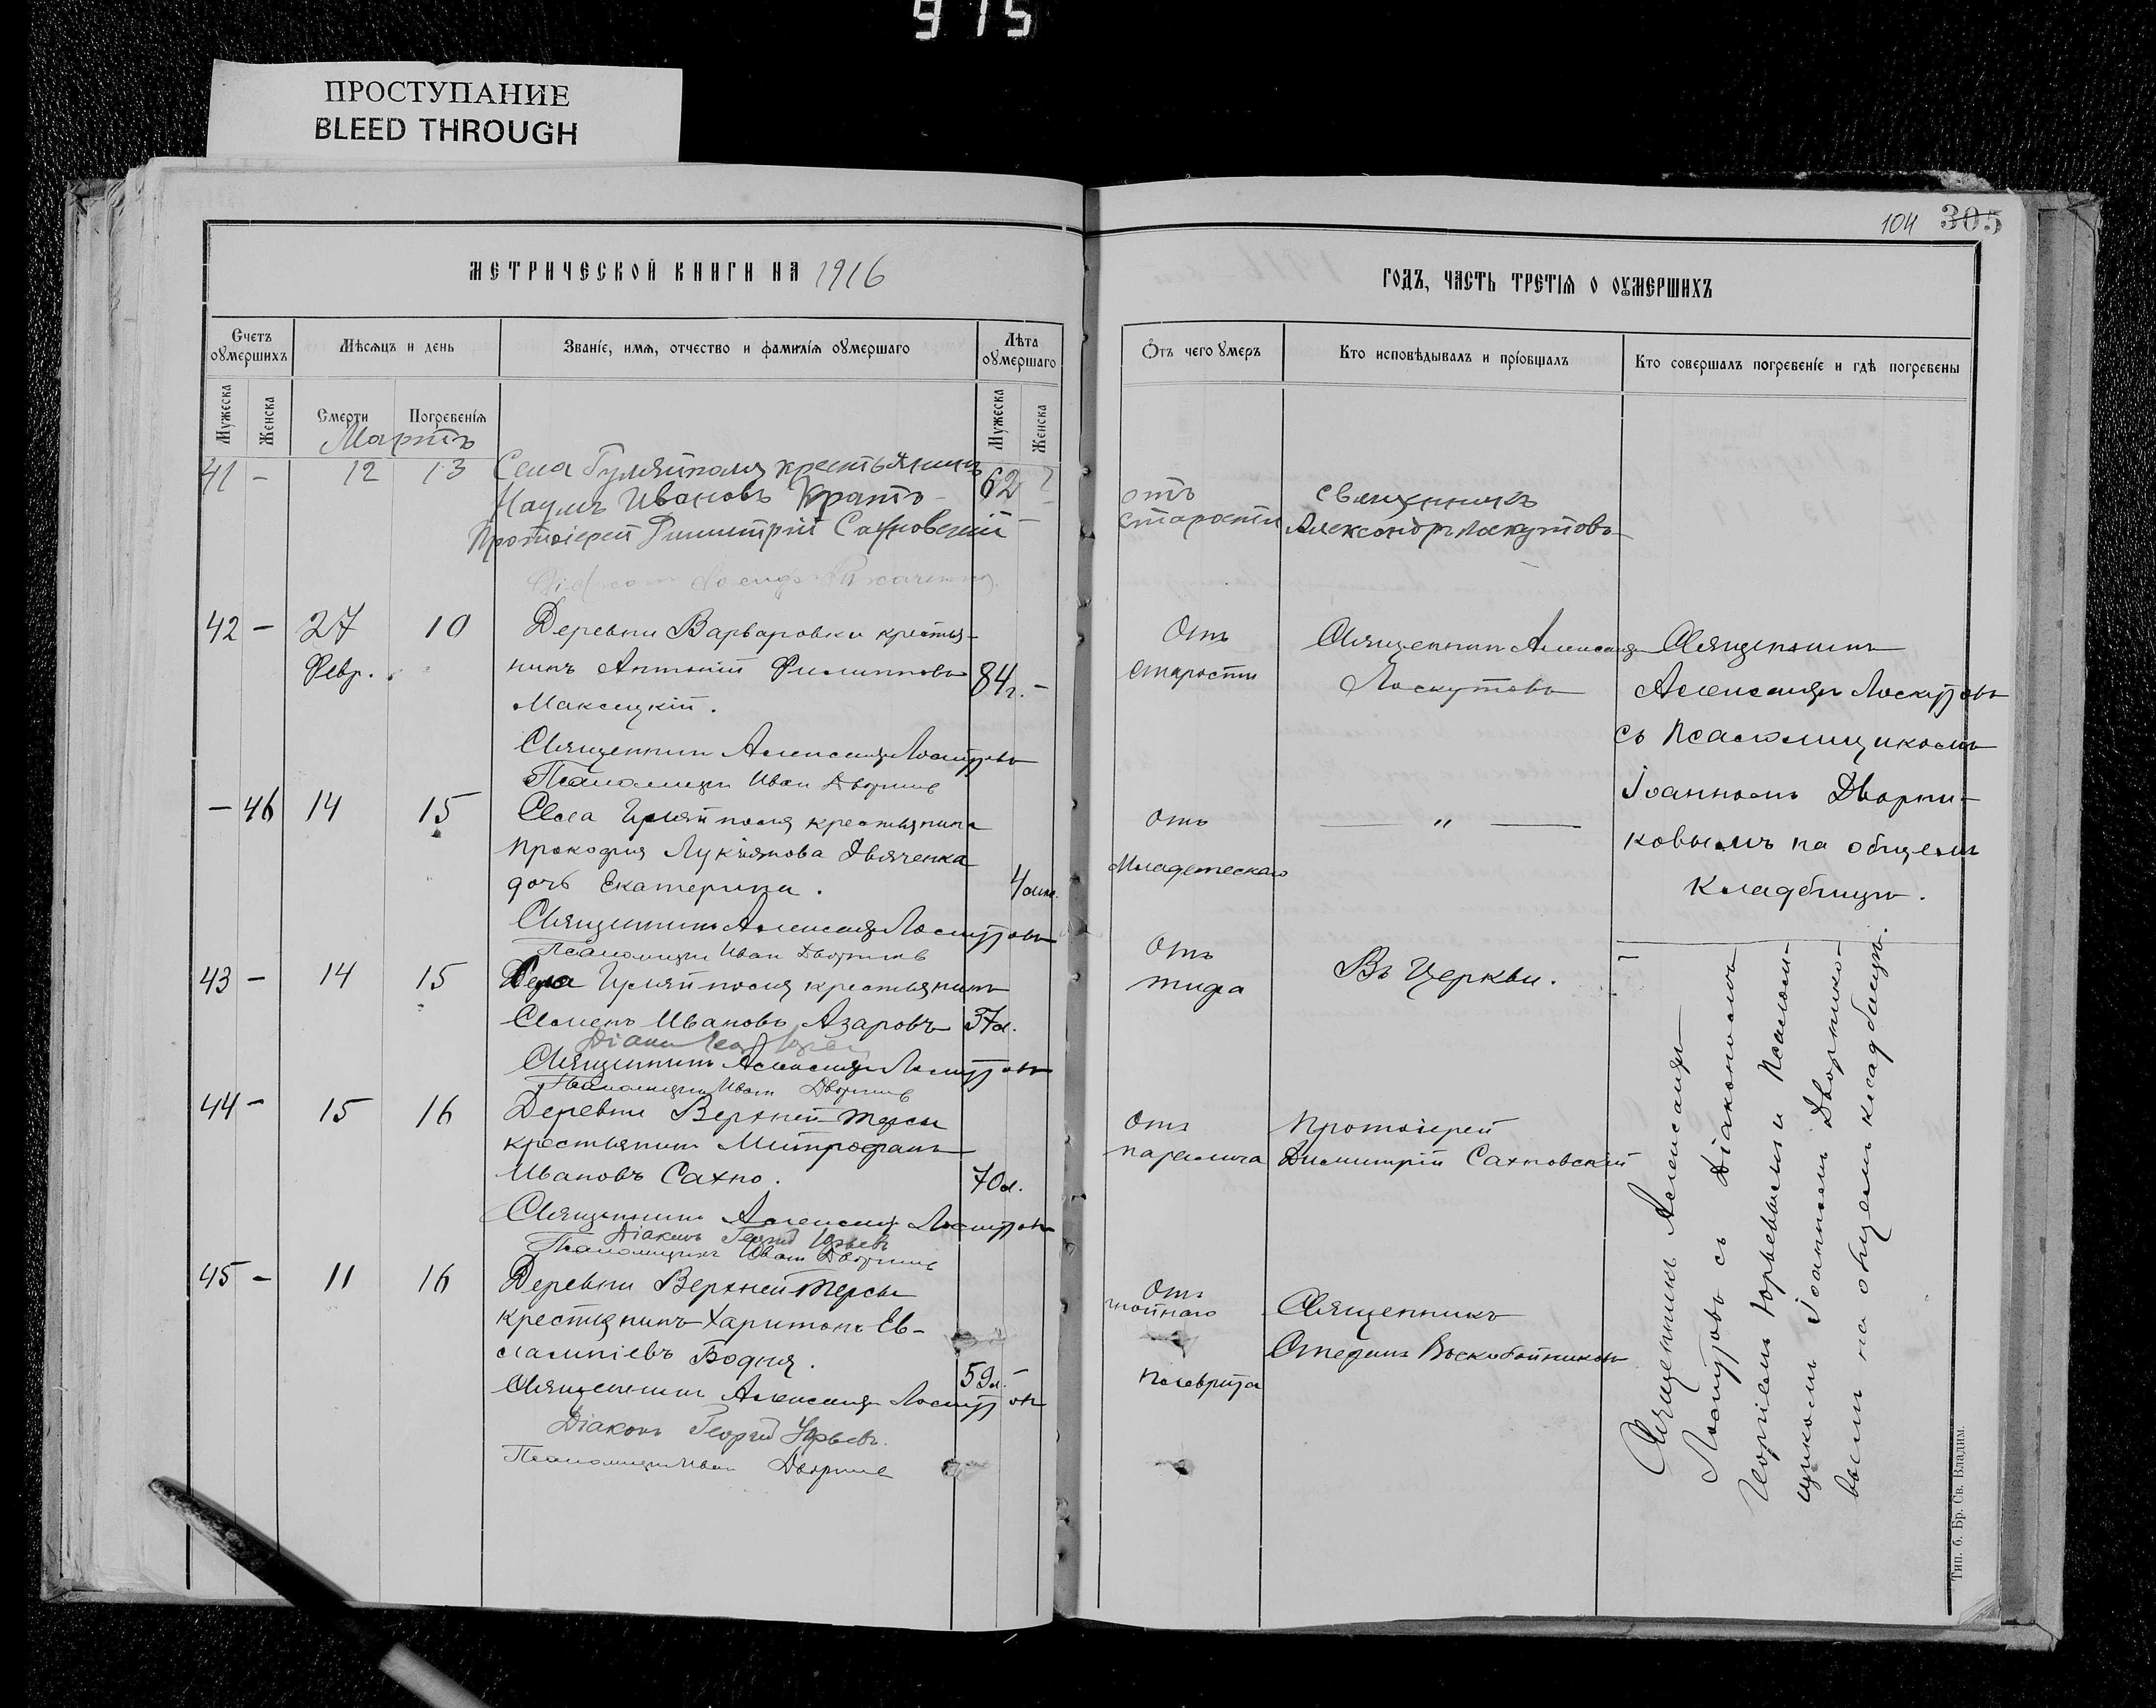 915
ПРОСТУПАНИЕ
BLEED THROUGH
104 305
МЕТРИЧЕСКОЙ КНИГИ НА 1916
ГОДЪ, ЧАСТЬ ТРЕТІЯ О ОУМЕРШИХЪ
Счетъ оумершихъ
Мѣсяцъ и день
Званіе, имя, отчество и фамилія оумершаго
Лѣта оумершаго
Отъ чего умеръ
Кто исповѣдывалъ и пріобщалъ
Кто совершалъ погребеніе и гдѣ погребены
Мужеска
Женска
Смерти
Погребенія
Мужеска
Женска
Мартъ
41 - 12 13 Села Гуляйполя крестьянинъ
Наумъ Ивановъ 62
Протоіерей Димитрій Сахновскій
отъ старости
священникъ
Александръ Лоскутовъ
42 - 27 10 Деревни Варваровки крестья-
Февр. нинъ Антоній Филипповъ 84 г. -
Максецкій.
Священникъ Александръ Лоскутовъ
Псаломщикъ Иван Дворник
Отъ
старости
Священникъ Александръ
Лоскутовъ
Священникъ
Александръ Лоскутовъ
съ Псаломщикомъ
Іоанномъ Дворни-
ковымъ на общемъ
кладбищѣ.
- 46 14 15 Села Гуляйполя крестьянина
Прокофія Лукіянова Дьяченка
дочь Екатерина. 4
Священникъ Александръ Лоскутовъ
Псаломщикъ Иван Дворник
Отъ
Младенческаго
— " —
43 - 14 15 Села Гуляйполя крестьянинъ
Семенъ Ивановъ Азаровъ 37 л.
Священникъ Александръ Лоскутовъ
Псаломщикъ Иван Дворник
Отъ
тифа
Въ Церкви.
44 - 15 16 Деревни Верхней-Терсы
крестьянинъ Митрофанъ
Ивановъ Сахно. 70 л.
Священникъ Александръ Лоскутовъ
Діаконъ Георгій Юрьевъ
Псаломщикъ Иван Дворник
Отъ
паралича
Протоіерей
Димитрій Сахновскій
45 - 11 16 Деревни Верхней Терсы
крестьянинъ Харитонъ Ев-
лампіевъ Бодня. 59 л.
Священникъ Александръ Лоскутовъ
Діаконъ Георгій Юрьевъ.
Псаломщикъ Иван Дворник
Отъ
гнойнаго
плеврита
Священникъ
Стефанъ Воскобойниковъ
Священникъ Александръ
Лоскутовъ съ Діакономъ
Георгіемъ Юрьевымъ и Псалом-
щикомъ Іоанномъ Дворнико-
вымъ на общемъ кладбищѣ.
Тип. б. Бр. Св. Владим.